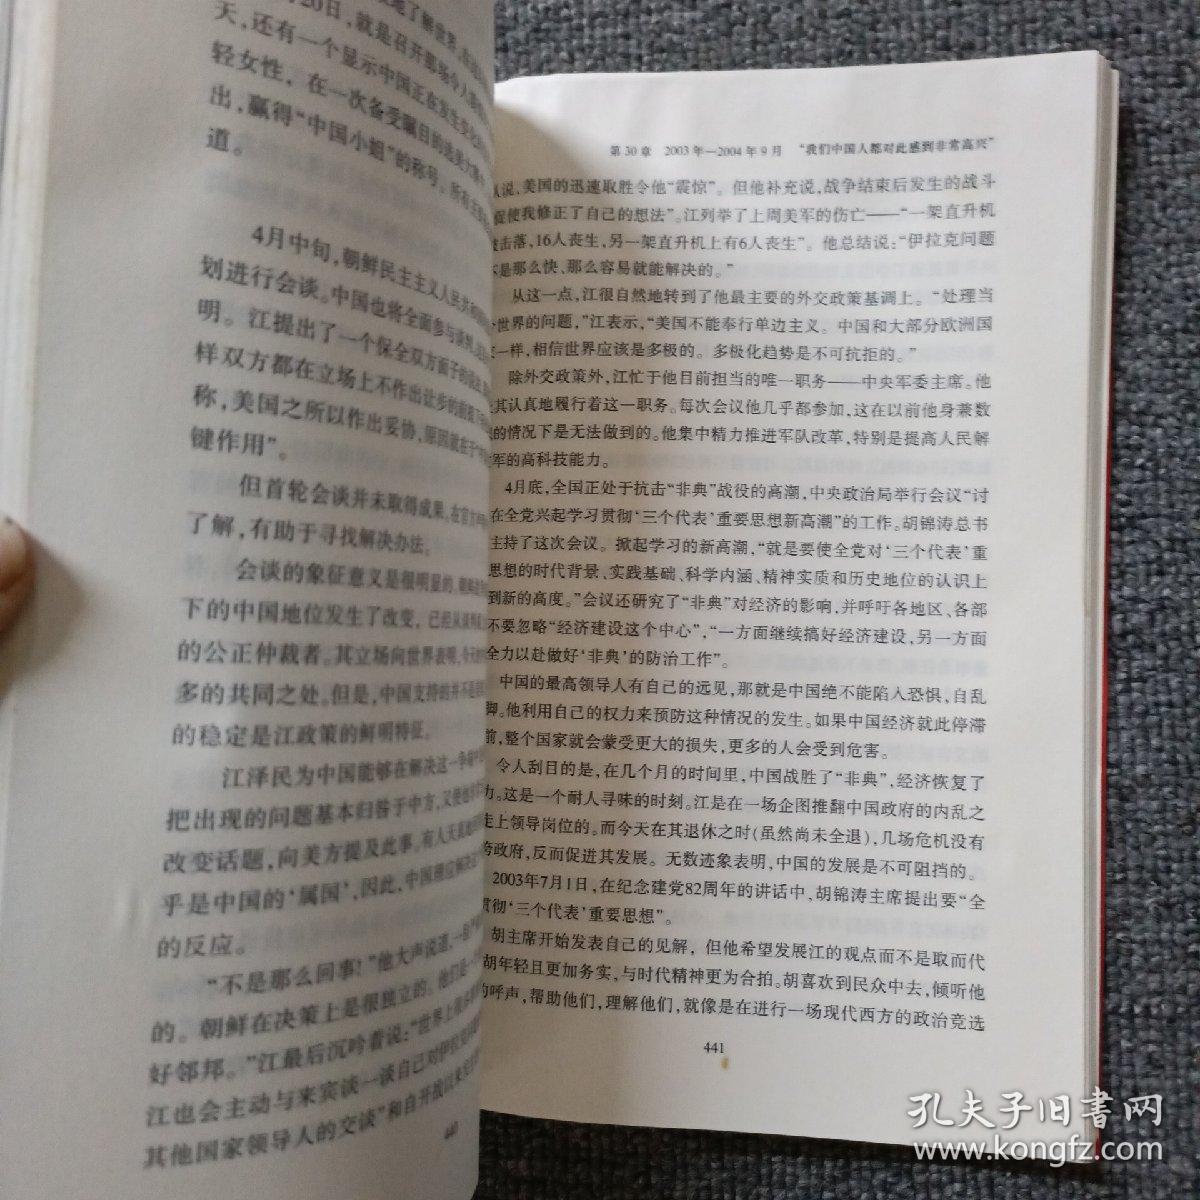 地了解世界,
月20日,就是召开那场令人
天,还有一个显示中国正在发生变化
轻女性,在一次备受瞩目的选美大赛
出,赢得“中国小姐”的称号。所有主
道。
4月中旬,朝鲜民主主义人民共和国
划进行会谈。中国也将全面参与谈判,
明。江提出了一个保全双方面子的
样双方都在立场上不作出让步的前提下
称,美国之所以作出妥协,原因就在于
键作用”。
但首轮会谈并未取得成果。在官方
了解,有助于寻找解决办法。
会谈的象征意义是很明显的,朝鲜
下的中国地位发生了改变,已经从
的公正仲裁者。其立场向世界表明,今天的
多的共同之处。但是,中国支持的并不是
的稳定是江政策的鲜明特征。
江泽民为中国能够在解决这一争端
把出现的问题基本归咎于中方,又使他
改变话题,向美方提及此事。有人天真地
乎是中国的‘属国’,因此,中国理应
的反应。
“不是那么回事!”他大声说道,
的。朝鲜在决策上是很独立的。他们是
好邻邦。”江最后沉吟着说:“世界上
江也会主动与来宾谈一谈自己对伊拉克
其他国家领导人的交谈”和自开战以来
440
第30章 2003年—2004年9月 “我们中国人都对此感到非常高兴”
认说,美国的迅速取胜令他“震惊”。但他补充说,战争结束后发生的战斗
促使我修正了自己的想法”。江列举了上周美军的伤亡——“一架直升机
被击落,16人丧生,另一架直升机上有6人丧生”。他总结说:“伊拉克问题
不是那么快、那么容易就能解决的。”
从这一点,江很自然地转到了他最主要的外交政策基调上。“处理当
个世界的问题,”江表示,“美国不能奉行单边主义。中国和大部分欧洲国
家一样,相信世界应该是多极的。多极化趋势是不可抗拒的。”
除外交政策外,江忙于他目前担当的唯一职务——中央军委主席。他
其认真地履行着这一职务。每次会议他几乎都参加,这在以前他身兼数
的情况下是无法做到的。他集中精力推进军队改革,特别是提高人民解
军的高科技能力。
4月底,全国正处于抗击“非典”战役的高潮,中央政治局举行会议“讨
在全党兴起学习贯彻‘三个代表’重要思想新高潮”的工作。胡锦涛总书
主持了这次会议。掀起学习的新高潮,“就是要使全党对‘三个代表’重
思想的时代背景、实践基础、科学内涵、精神实质和历史地位的认识上
到新的高度。”会议还研究了“非典”对经济的影响,并呼吁各地区、各部
不要忽略“经济建设这个中心”,“一方面继续搞好经济建设,另一方面
全力以赴做好‘非典’的防治工作”。
中国的最高领导人有自己的远见,那就是中国绝不能陷入恐惧、自乱
脚。他利用自己的权力来预防这种情况的发生。如果中国经济就此停滞
前,整个国家就会蒙受更大的损失,更多的人会受到危害。
令人刮目的是,在几个月的时间里,中国战胜了“非典”,经济恢复了
力。这是一个耐人寻味的时刻。江是在一场企图推翻中国政府的内乱之
走上领导岗位的。而今天在其退休之时(虽然尚未全退),几场危机没有
垮政府,反而促进其发展。无数迹象表明,中国的发展是不可阻挡的。
2003年7月1日,在纪念建党82周年的讲话中,胡锦涛主席提出要“全
贯彻‘三个代表’重要思想”。
胡主席开始发表自己的见解,但他希望发展江的观点而不是取而代
胡年轻且更加务实,与时代精神更为合拍。胡喜欢到民众中去,倾听他
的呼声,帮助他们,理解他们,就像是在进行一场现代西方的政治竞选
441
孔夫子旧书网
www.kongfz.com